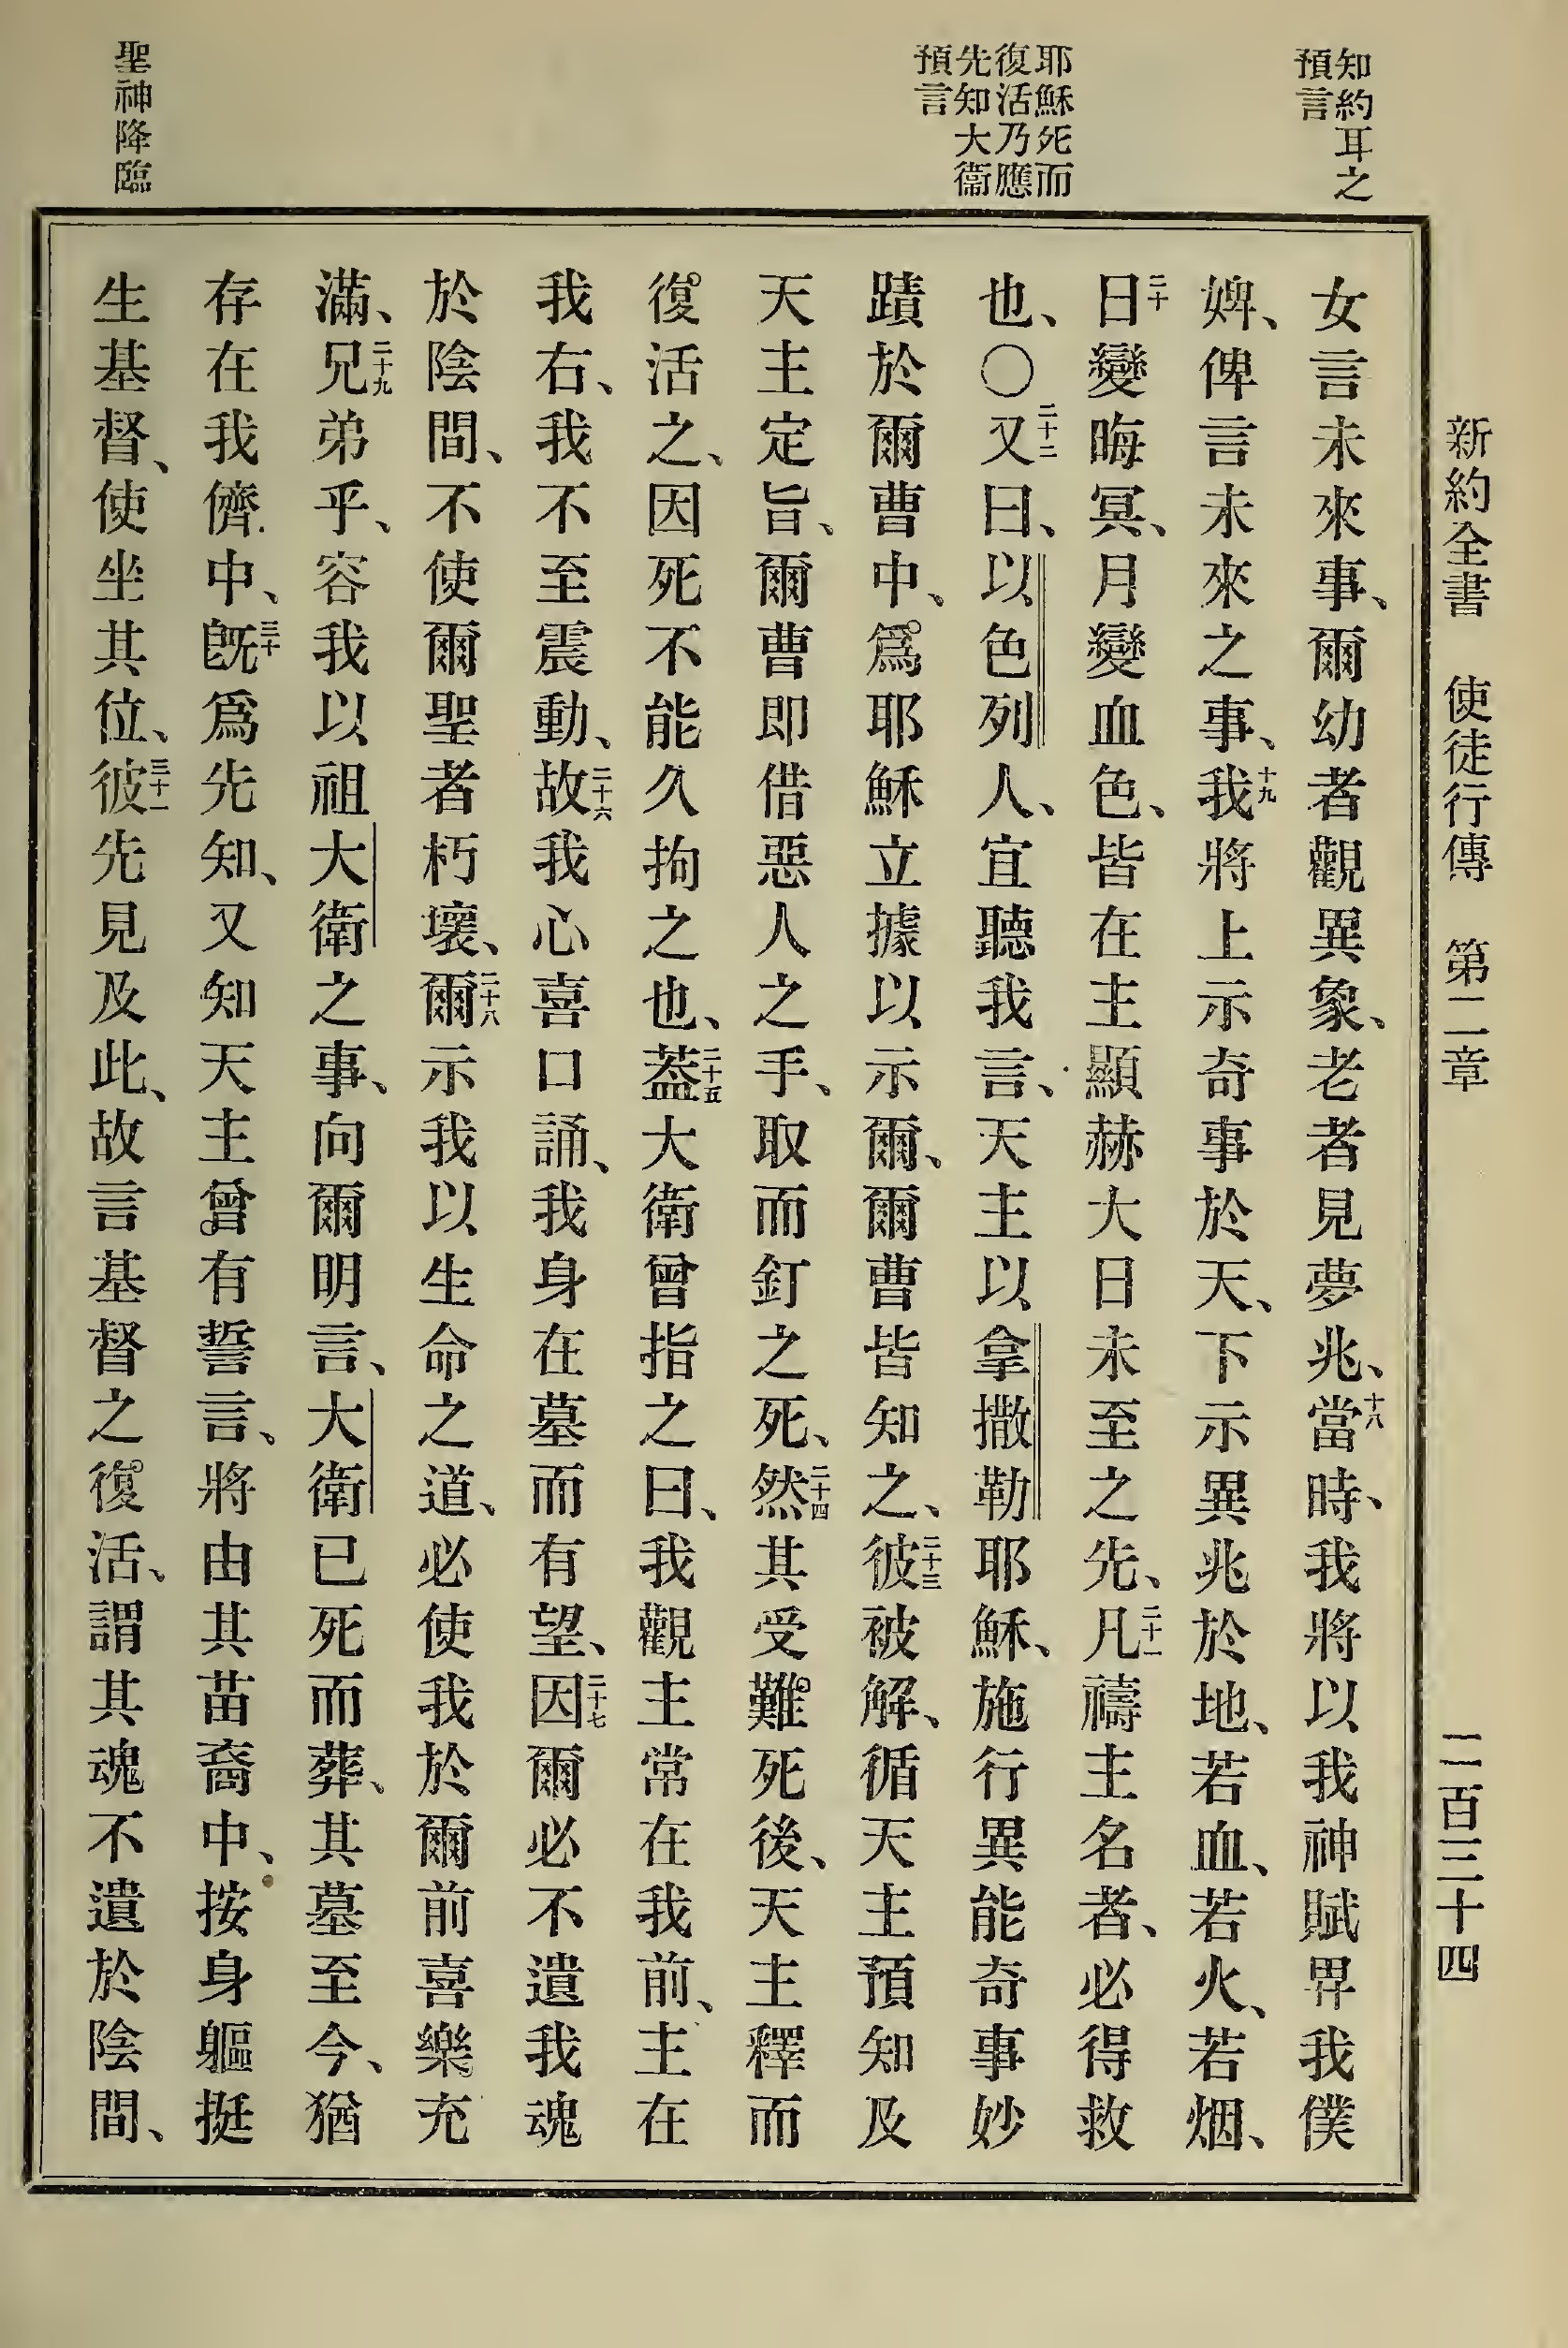 新約全書 使徒行傳 第二章 二百三十四
知約耳之
預言
耶穌死而
復活乃應
先知大衞
預言
聖神降臨
女言未來事、爾幼者觀異象、老者見夢兆、十八當時、我將以我神賦畀我僕
婢、俾言未來之事、十九我將上示奇事於天、下示異兆於地、若血、若火、若烟、
二十日變晦冥、月變血色、皆在主顯赫大日未至之先、二十一凡禱主名者、必得救
也、〇二十二又曰、以色列人、宜聽我言、天主以拿撒勒耶穌、施行異能奇事妙
蹟於爾曹中、爲耶穌立據以示爾、爾曹皆知之、二十三彼被解、循天主預知及
天主定旨、爾曹即借惡人之手、取而釘之死、二十四然其受難死後、天主釋而
復活之、因死不能久拘之也、二十五蓋大衛曾指之曰、我觀主常在我前、主在
我右、我不至震動、二十六故我心喜口誦、我身在墓而有望、二十七因爾必不遺我魂
於陰間、不使爾聖者朽壞、二十八爾示我以生命之道、必使我於爾前喜樂充
滿、二十九兄弟乎、容我以祖大衛之事、向爾明言、大衛已死而葬、其墓至今、猶
存在我儕中、三十旣爲先知、又知天主曾有誓言、將由其苗裔中、按身軀挺
生基督、使坐其位、三十一彼先見及此、故言基督之復活、謂其魂不遺於陰間、